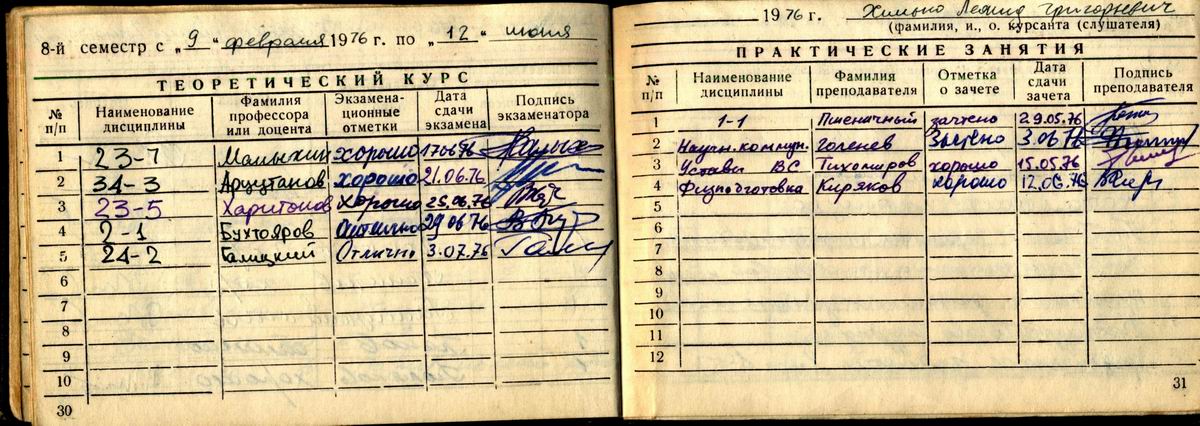 8-й семестр с „9“ февраля 1976 г. по „12“ июня
ТЕОРЕТИЧЕСКИЙ КУРС
№ п/п Наименование дисциплины Фамилия профессора или доцента Экзамена-ционные отметки Дата сдачи экзамена Подпись экзаменатора
1 23-7 Малыхин хорошо 17.06.76
2 34-3 Арцутанов хорошо 21.06.76
3 23-5 Харитонов хорошо 25.06.76
4 2-1 Бухтояров отлично 29.06.76
5 24-2 Галицкий Отлично 3.07.76
6
7
8
9
10
30
1976 г. Леонид Григорьевич
(фамилия, и., о. курсанта (слушателя)
ПРАКТИЧЕСКИЕ ЗАНЯТИЯ
№ п/п Наименование дисциплины Фамилия преподавателя Отметка о зачете Дата сдачи зачета Подпись преподавателя
1 1-1 Пшеничный зачтено 29.05.76
2 Научн. коммун. Голенев Зачтено 3.06.76
3 Уставы ВС Тихомиров хорошо 15.05.76
4 Физподготовка Киряков хорошо 12.06.76
5
6
7
8
9
10
11
12
31